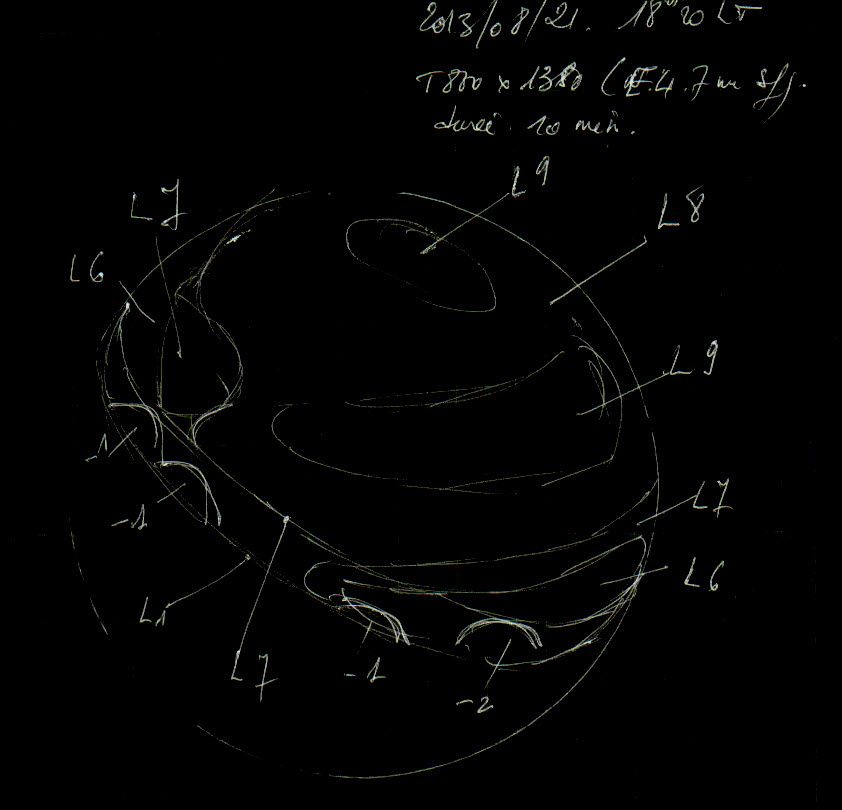 2013/08/21. 18h20 LT
T800 x 1380 (E.4.7 mm
10 min.
L9
L7
L8
L6
L9
-1
L7
-1
L6
L1
L7
-1
-2